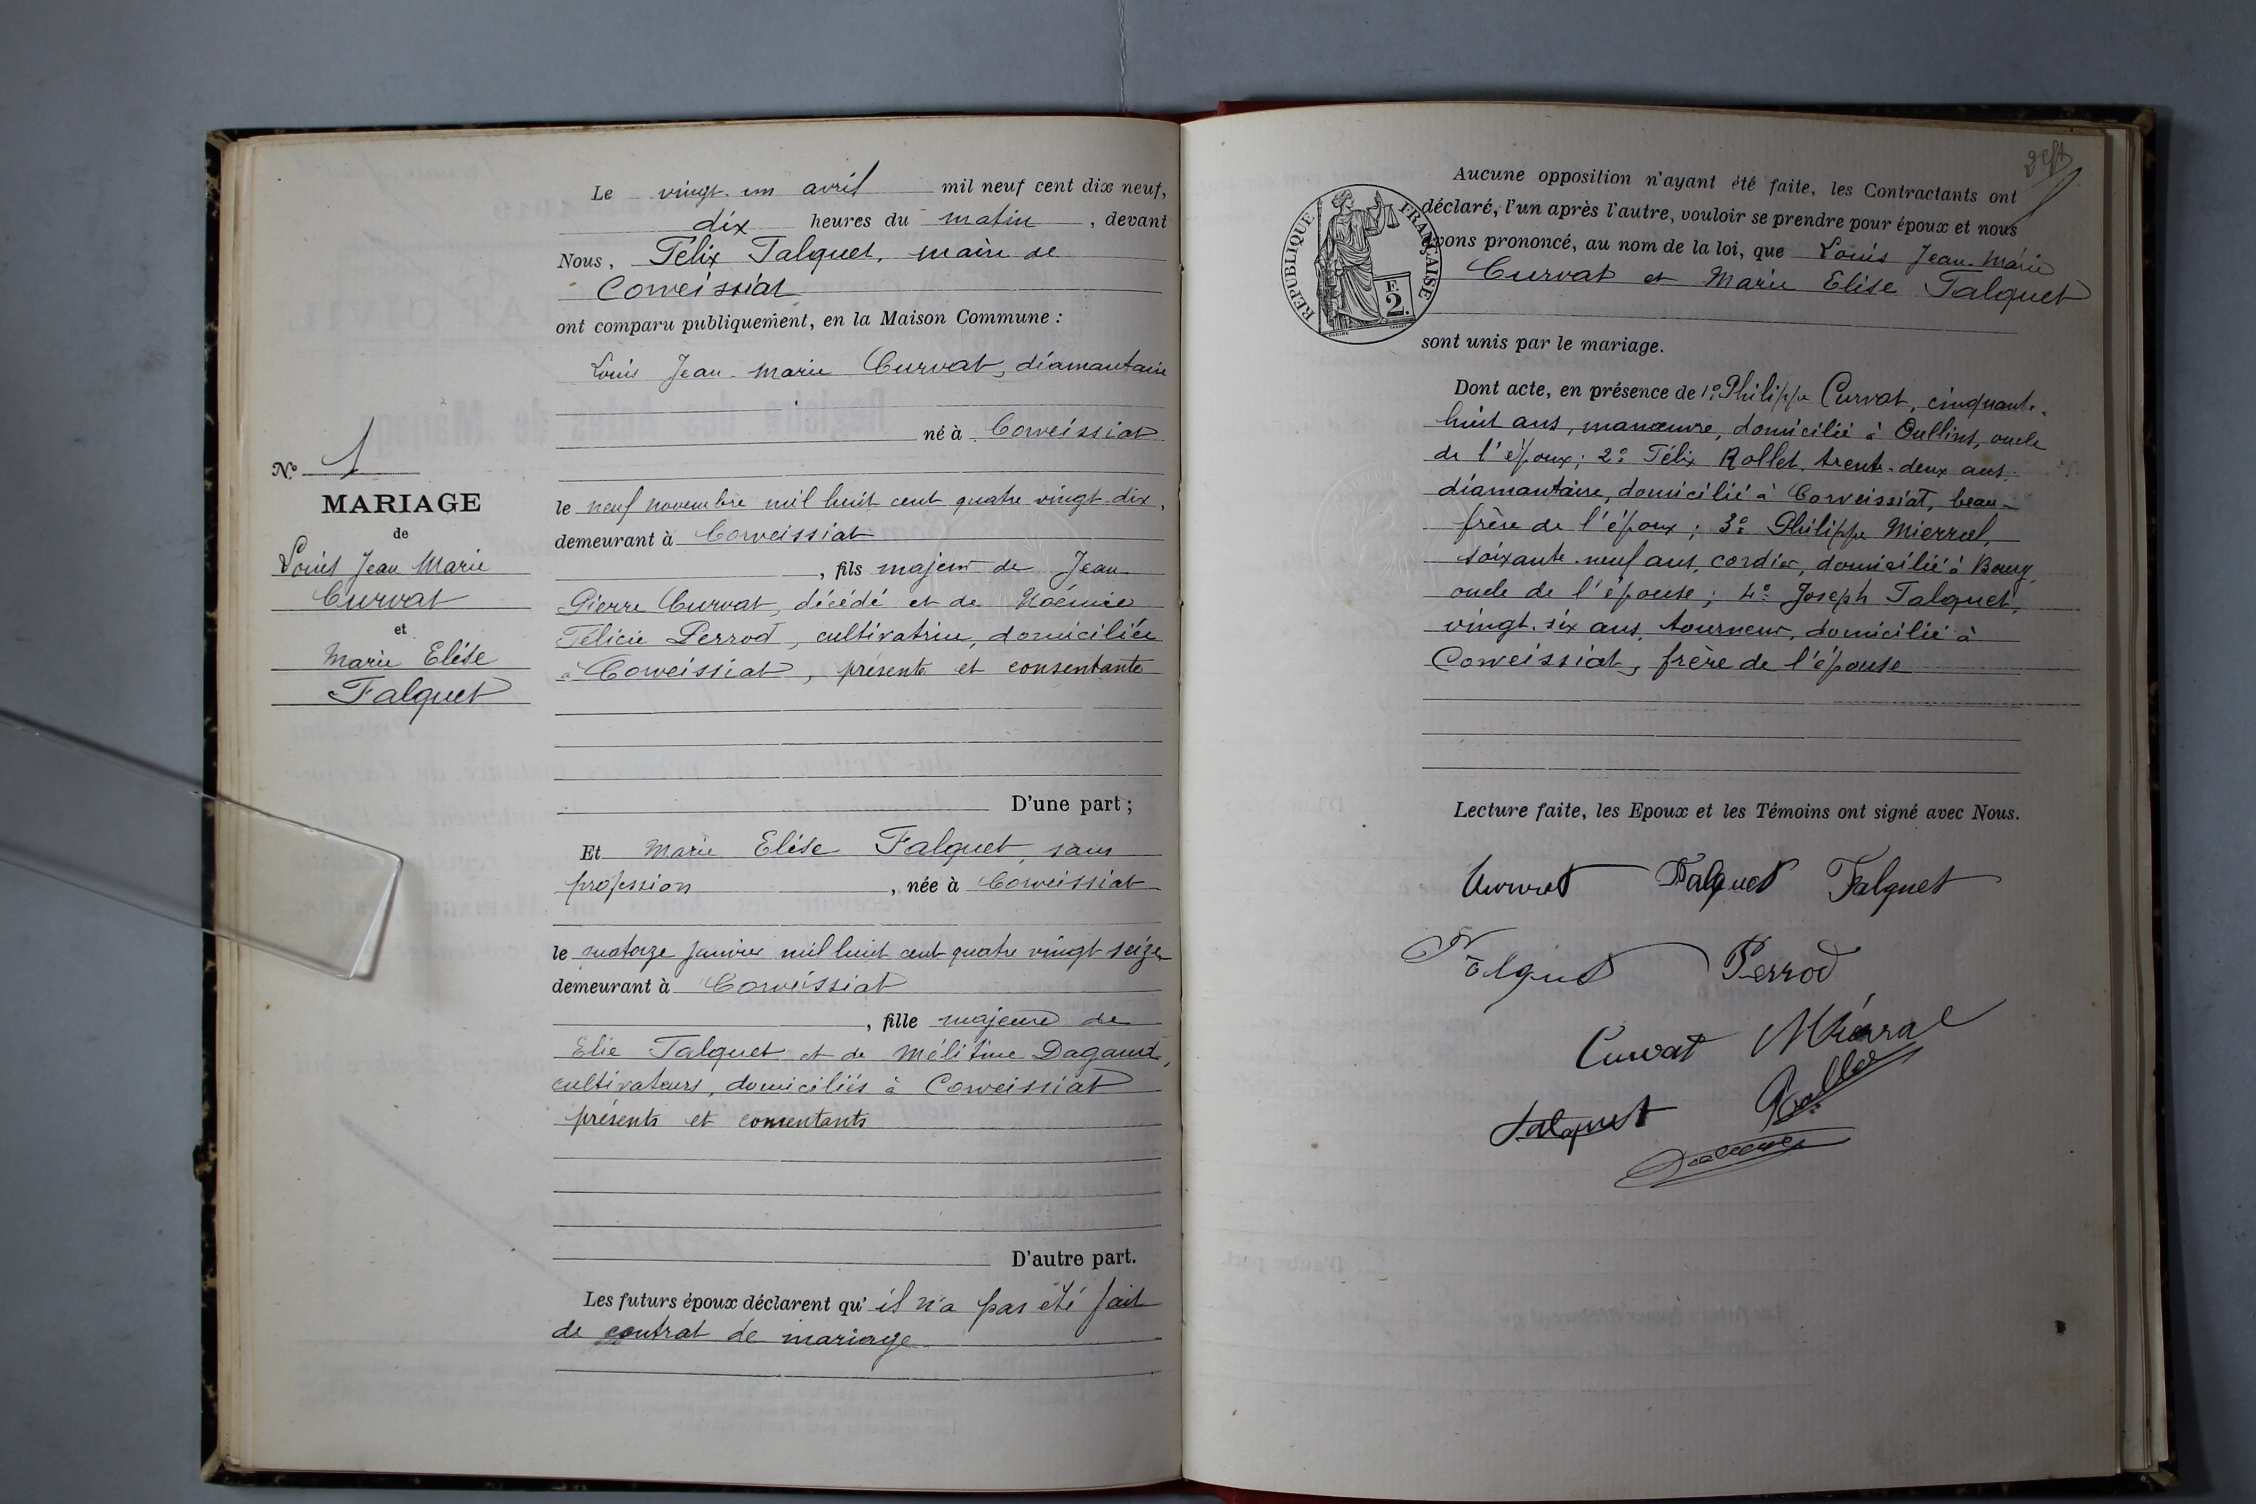 Le vingt-un avril mil neuf cent dix neuf,
dix heures du matin, devant
Nous, Félix Falquet, maire de
Corveissiat
ont comparu publiquement, en la Maison Commune :
Louis Jean-Marie Curvat, diamantaire
né à Corveissiat
No 1
MARIAGE
de
Louis Jean Marie
Curvat
et
Marie Elise
Falquet
le neuf novembre mil huit cent quatre vingt-dix,
demeurant à Corveissiat
, fils majeur de Jean
Pierre Curvat, décédé et de Noémie
Félicie Perrod, cultivatrice, domiciliée
à Corveissiat, présente et consentante
D'une part ;
Et Marie Elise Falquet, sans
profession, née à Corveissiat
le quatorze janvier mil huit cent quatre vingt seize
demeurant à Corveissiat
, fille majeure de
Elie Falquet et de Mélitine Dagaud,
cultivateurs, domiciliés à Corveissiat
présents et consentants
D'autre part.
Les futurs époux déclarent qu'il n'a pas été fait
de contrat de mariage
RÉPUBLIQUE FRANÇAISE
2F.
Aucune opposition n'ayant été faite, les Contractants ont
déclaré, l'un après l'autre, vouloir se prendre pour époux et nous
avons prononcé, au nom de la loi, que Louis Jean-Marie
Curvat et Marie Elise Falquet
sont unis par le mariage.
Dont acte, en présence de 1° Philippe Curvat, cinquante-
huit ans, manœuvre, domicilié à Oullins, oncle
de l'époux; 2° Félix Rollet, trente-deux ans,
diamantaire, domicilié à Corveissiat, beau-
frère de l'époux; 3° Philippe Mierral,
soixante-neuf ans, cordier, domicilié à Bourg,
oncle de l'épouse; 4° Joseph Falquet,
vingt-six ans, tourneur, domicilié à
Corveissiat, frère de l'épouse
Lecture faite, les Epoux et les Témoins ont signé avec Nous.
Curvat Falquet Falquet
Falquet Perrod
Curvat Miérral
Falquet Rollet